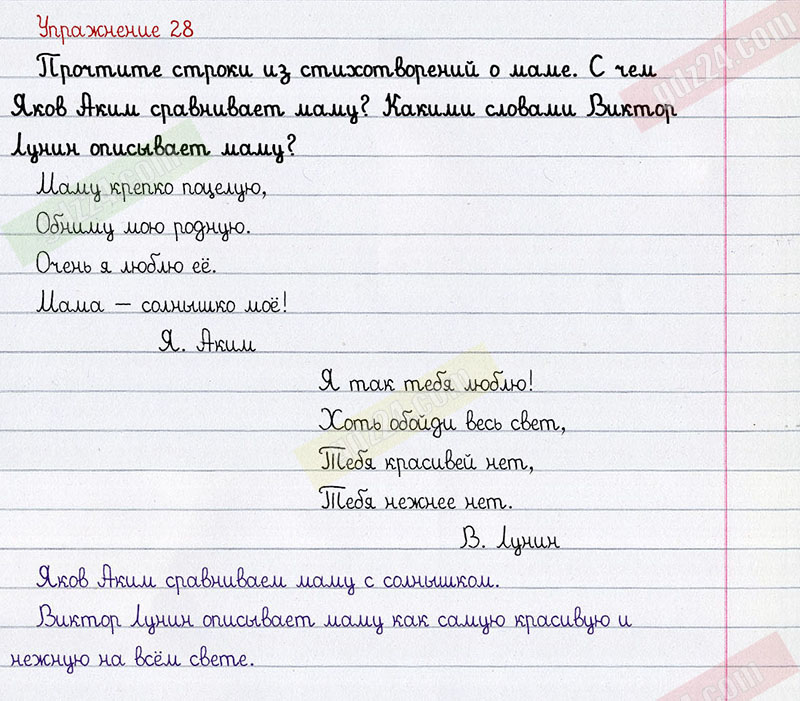 Упражнение 28
Прочтите строки из стихотворений о маме. С чем
Яков Аким сравнивает маму? Какими словами Виктор
Лунин описывает маму?
Маму крепко поцелую,
Обниму мою родную.
Очень я люблю её.
Мама — солнышко моё!
Я. Аким
Я так тебя люблю!
Хоть обойди весь свет,
Тебя красивей нет,
Тебя нежнее нет.
В. Лунин
Яков Аким сравниваем маму с солнышком.
Виктор Лунин описывает маму как самую красивую и
нежную на всём свете.
gdz24.com
gdz24.com
gdz24.com
gdz24.com